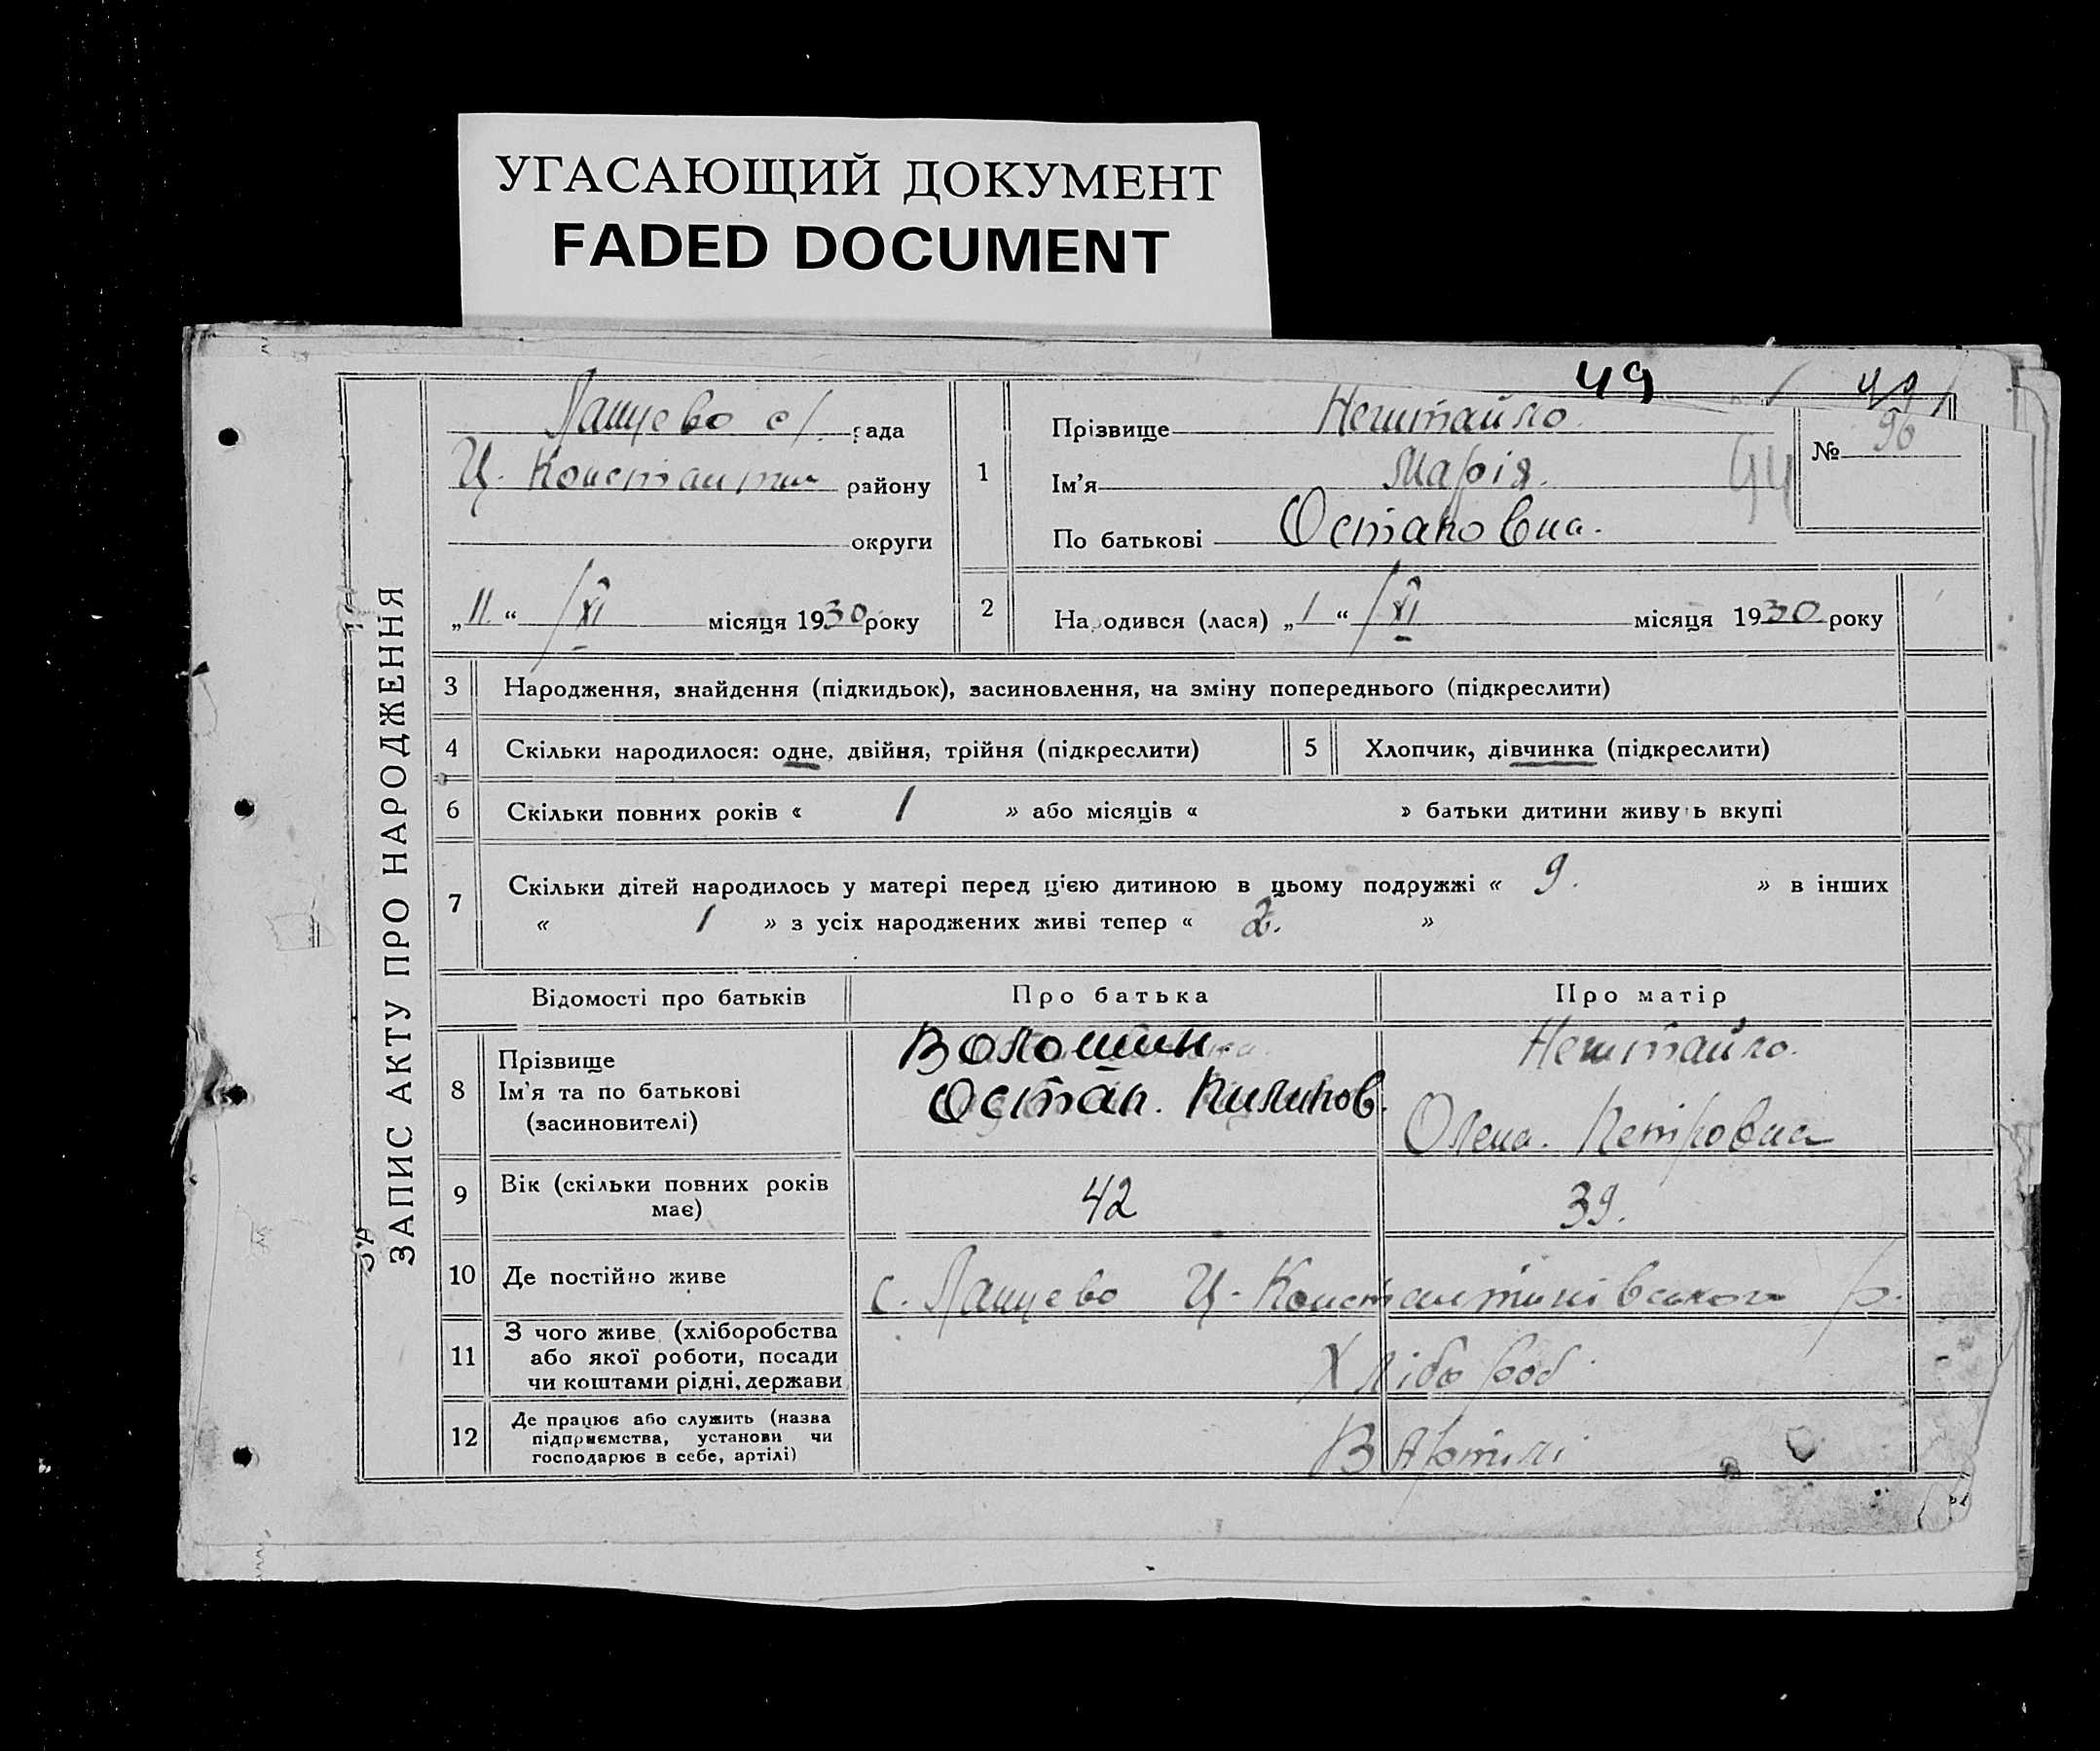 УГАСАЮЩИЙ ДОКУМЕНТ
FADED DOCUMENT
49
49
ЗАПИС АКТУ ПРО НАРОДЖЕННЯ
Лацгево с/ рада
Ц. Констаитин району
округи
„11“ /XI місяця 1930 року
1
Прізвище Нештайло
Ім'я Марія.
По батькові Остаповна.
№ 96
44
2
Народився (лася) „1“ /XI місяця 1930 року
3 Народження, знайдення (підкидьок), засиновлення, на зміну попереднього (підкреслити)
4 Скільки народилося: одне, двійня, трійня (підкреслити)
5 Хлопчик, дівчинка (підкреслити)
6 Скільки повних років « 1 » або місяців « » батьки дитини живуть вкупі
7 Скільки дітей народилось у матері перед цією дитиною в цьому подружжі « 9. » в інших
« 1 » з усіх народжених живі тепер « 2. »
Відомості про батьків Про батька Про матір
8 Прізвище
Ім'я та по батькові
(засиновителі)
Волошин
Остап. Пилипов.
Нештайло.
Олена. Петровна
9 Вік (скільки повних років
має)
42
39.
10 Де постійно живе с. Ц-Константинівського р.
11 З чого живе (хліборобства
або якої роботи, посади
чи коштами рідні, держави
Хлібороб.
12 Де працює або служить (назва
підприємства, установи чи
господарює в себе, артілі)
В Артилі